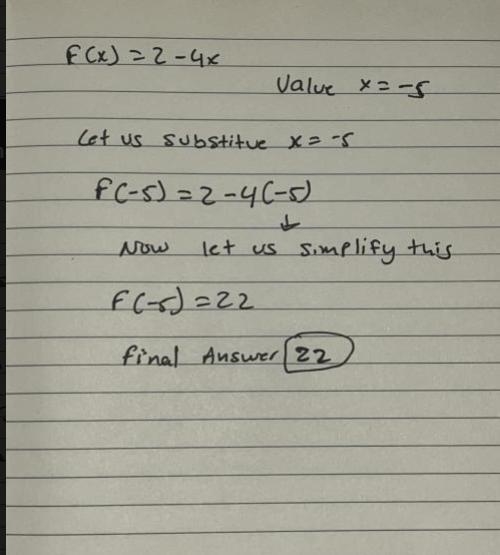 F(x) = 2 - 4x
Value x = -5
Let us substitue x = -5
F(-5) = 2 - 4(-5)
↓
Now let us simplify this
F(-5) = 22
Final Answer 22